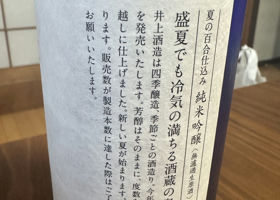 夏の百合仕込み 純米吟醸(無濾過生原酒)
盛夏でも冷気の満ちる酒蔵の
井上酒造は四季醸造、季節ごとの酒造り。今年
を発売いたします。芳醇はそのままに、度数
越しに仕上げました。新しい夏が始まります。
ります。販売数が製造本数に達した際はご了
お願いいたします。